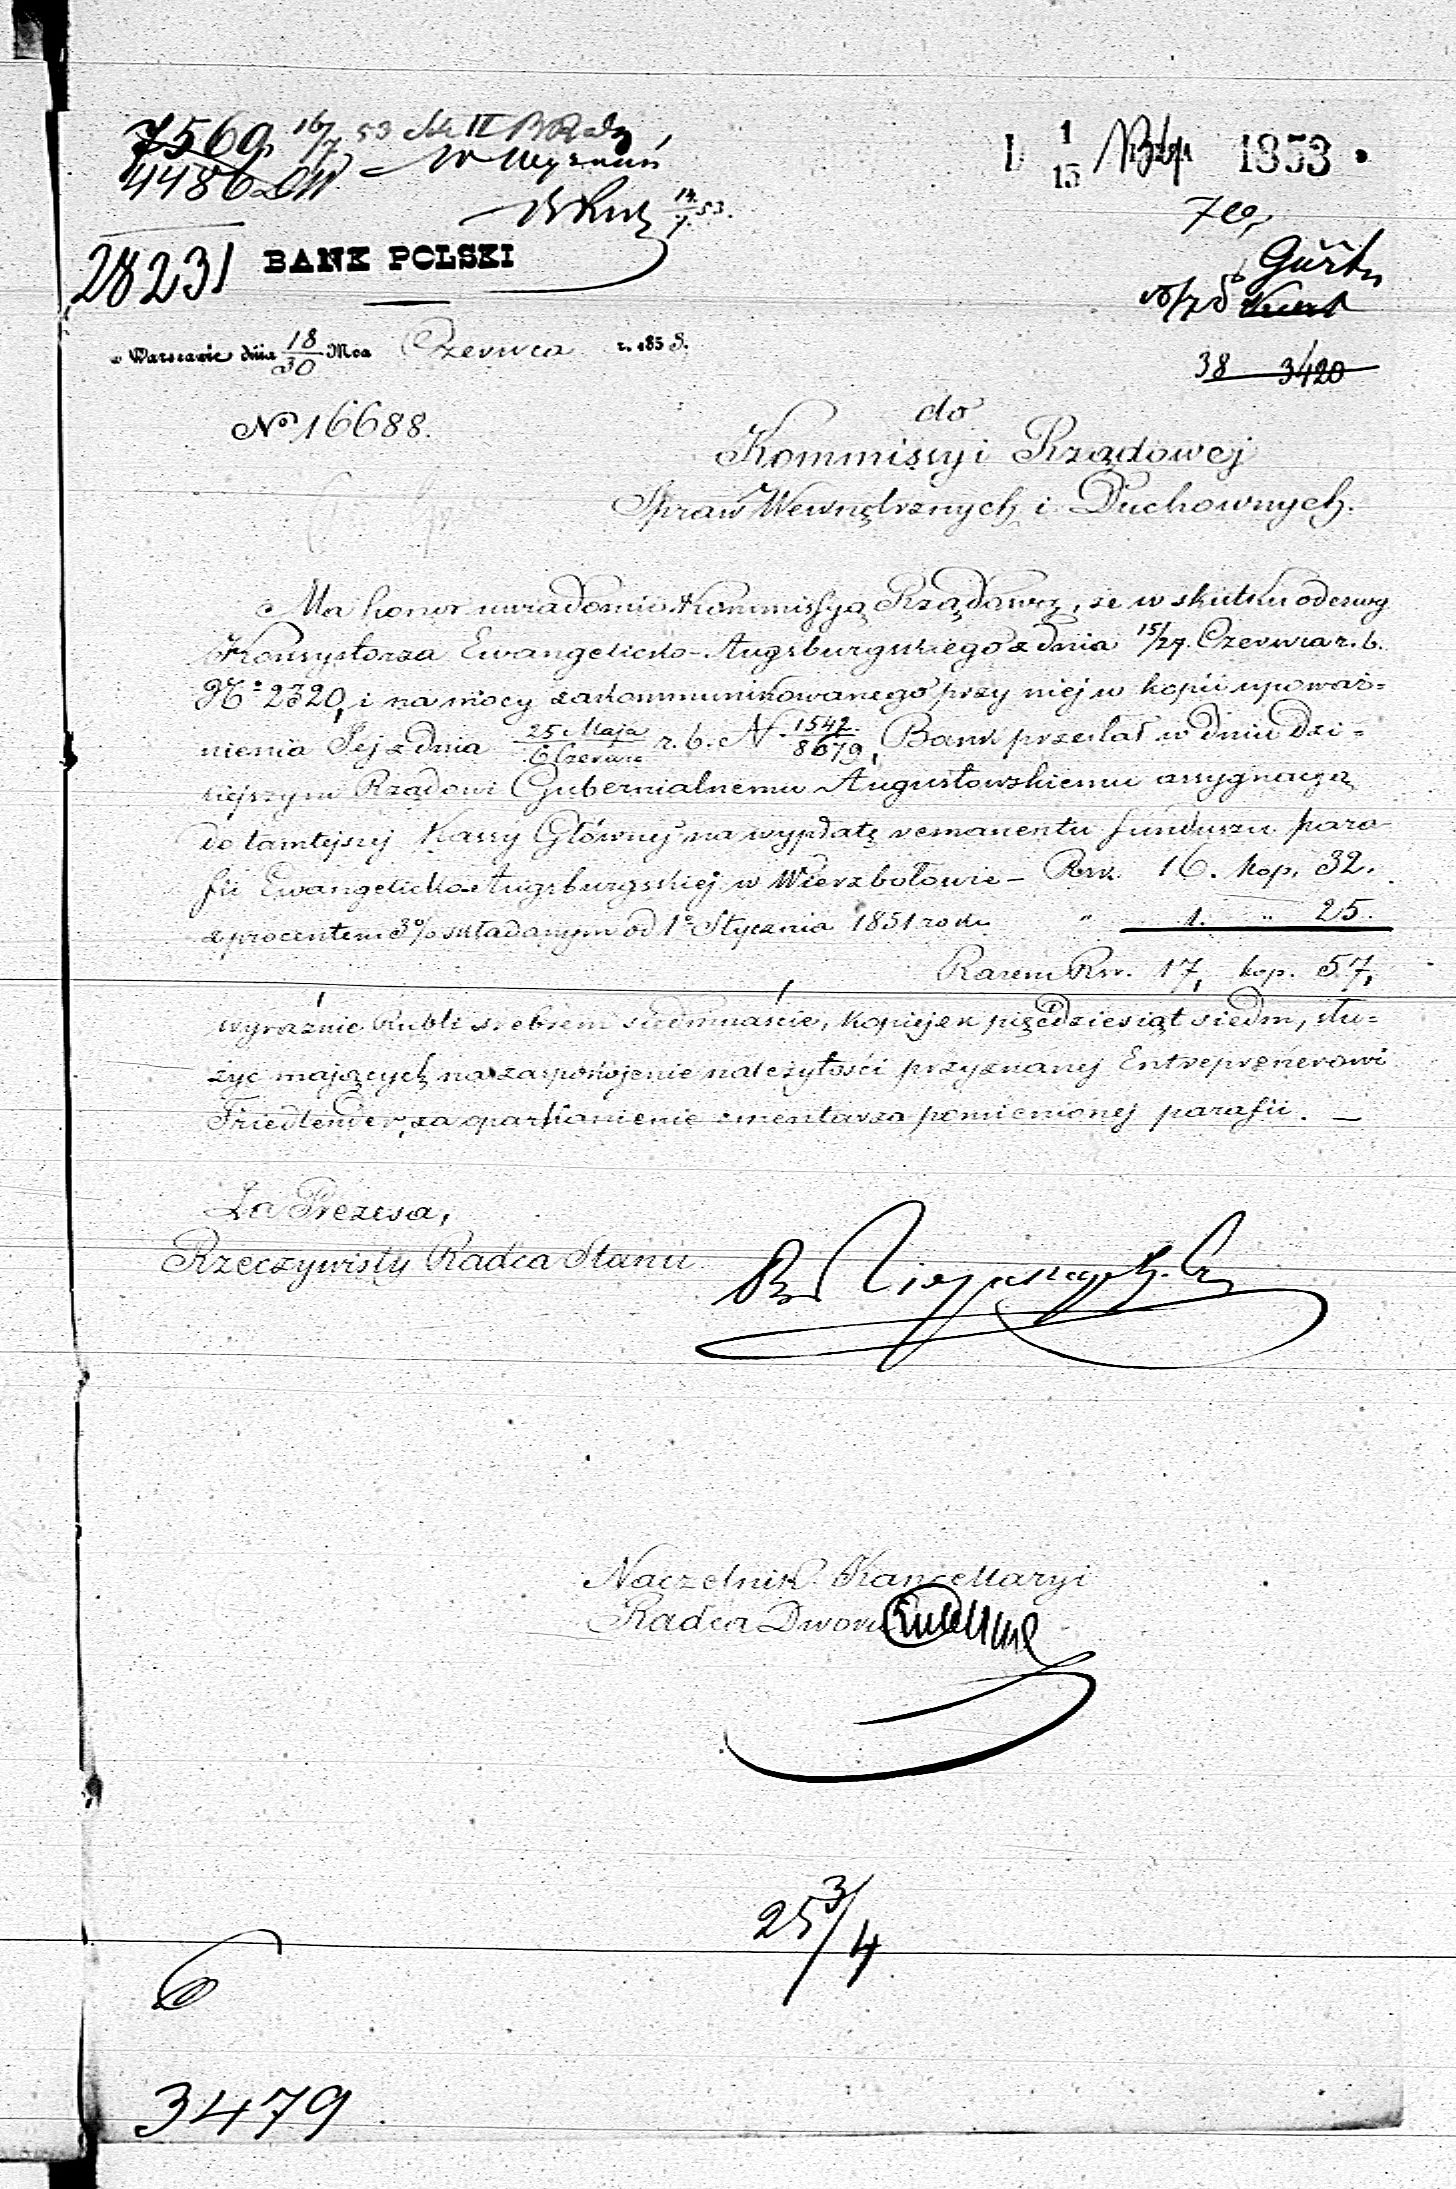 7569 16/7 53
4486
14/7 53.
28231 BANK POLSKI
w Warszawie dnia 18/30 Mca Czerwca r. 1853.
1/13 1853.
38 3420
No 16688.
do
Kommissyi Rządowej
Spraw Wewnętrznych i Duchownych.
Ma honor uwiadomić Kommissyą Rządową, że w skutku odezwy
Konsystorza Ewangelicko-Augsburgskiego z dnia 15/27. Czerwca r. b.
No 2320, i na mocy zakommunikowanego przy niej w kopii upoważ=
nienia Jej z dnia 25 Maja/6 Czerwca r. b. N. 1542/8679, Bank przesłał w dniu dzi=
siejszym Rządowi Gubernialnemu Augustowskiemu assygnacyą
do tamtejszej Kassy Głównej na wypłatę remanentu funduszu para-
fii Ewangelicko-Augsburgskiej w Wierzbołowie - Rsr. 16. kop. 32.
z procentem 3% składanym od 1o Stycznia 1851 roku " 1. " 25.
Razem Rsr. 17, kop. 57,
wyraźnie Rubli srebrem siedmnaście, kopiejek pięćdziesiąt siedm, słu=
żyć mających na zaspokojenie należytości przyznanej Entreprenerowi
Friedlender, za oparkanienie cmentarza pomienionej parafii. —
Za Prezesa,
Rzeczywisty Radca Stanu
Naczelnik Kancellaryi
Radca Dworu
25 3/4
3479